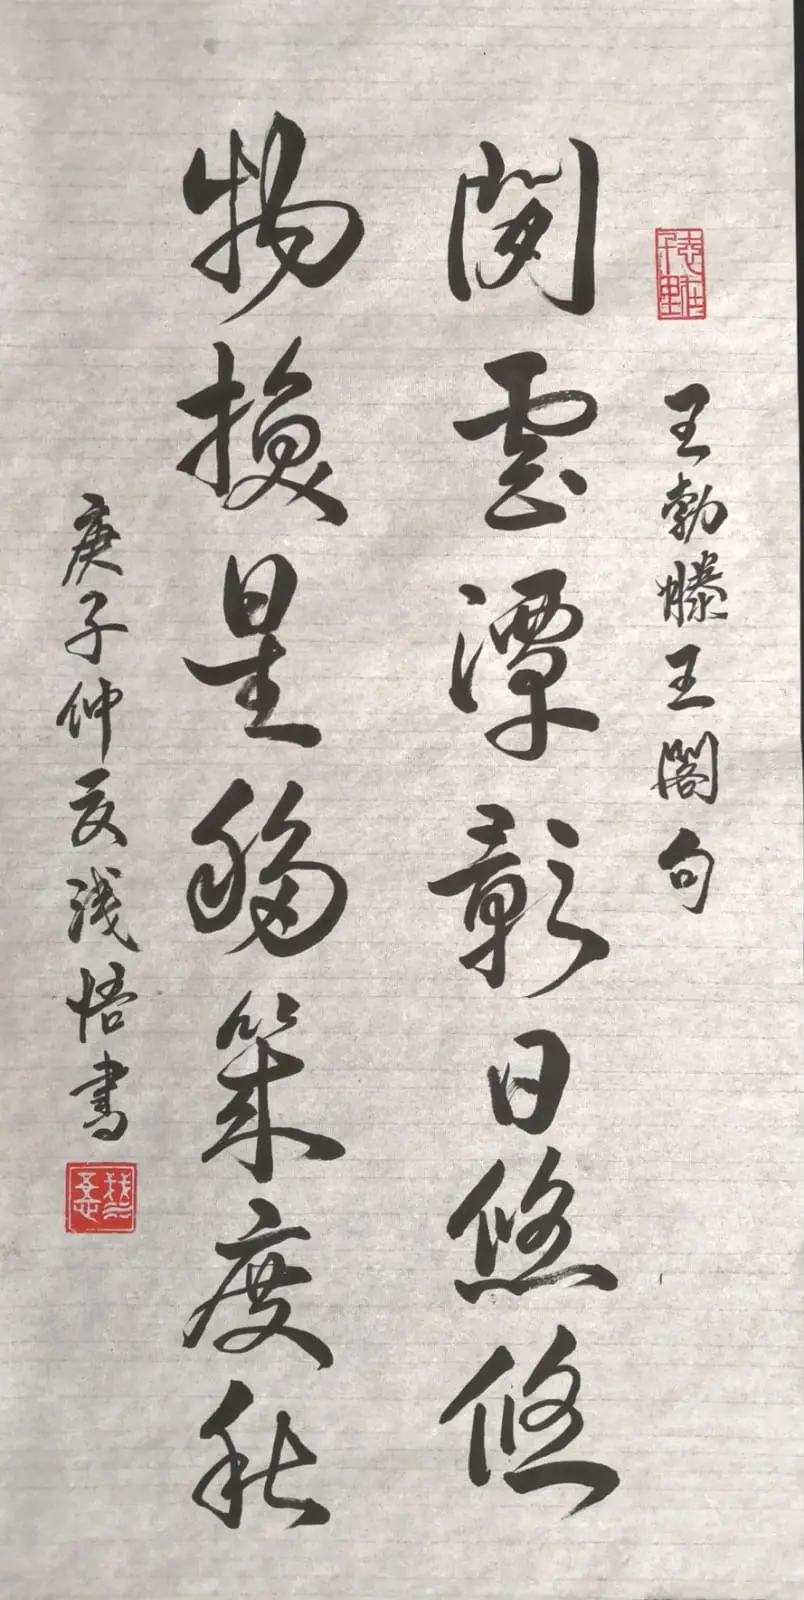 志在千里
王勃滕王閣句
閑雲潭影日悠悠
物換星移幾度秋
庚子仲夏浅悟書